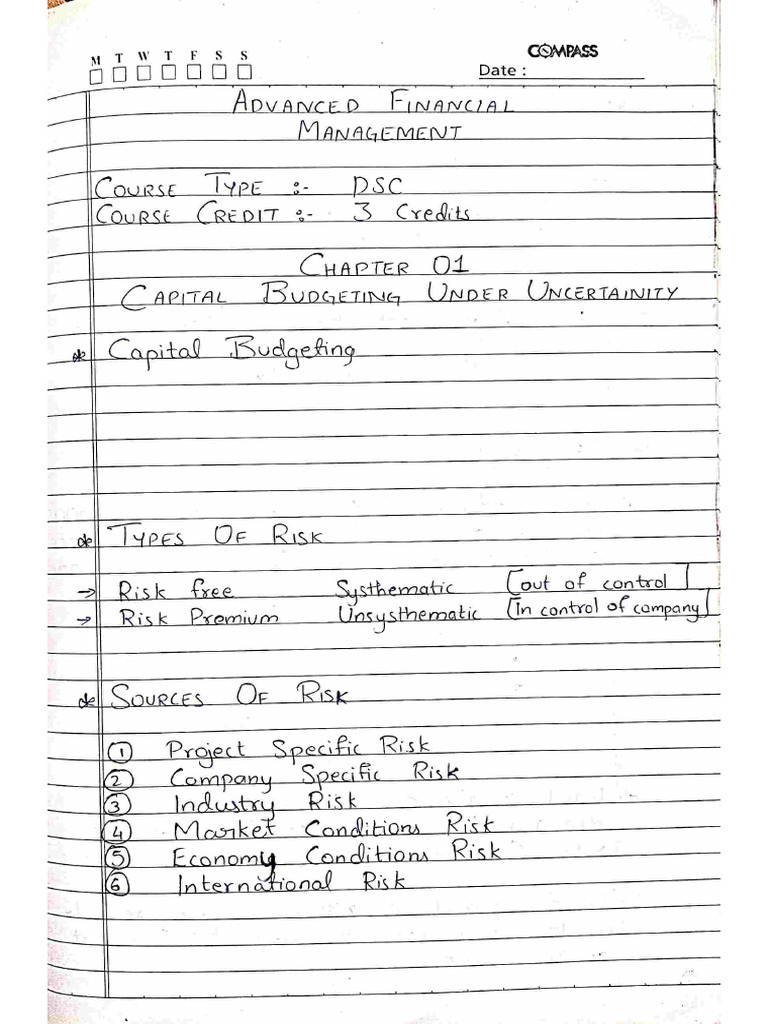 M T W T F S S
COMPASS
Date :
ADVANCED FINANCIAL
MANAGEMENT
COURSE TYPE :- DSC
COURSE CREDIT :- 3 Credits
CHAPTER 01
CAPITAL BUDGETING UNDER UNCERTAINITY
* Capital Budgeting
* TYPES OF RISK
→ Risk free Systhematic [out of control]
→ Risk Premium Unsysthematic [In control of company]
* SOURCES OF RISK
① Project Specific Risk
② Company Specific Risk
③ Industry Risk
④ Market Conditions Risk
⑤ Economy Conditions Risk
⑥ International Risk